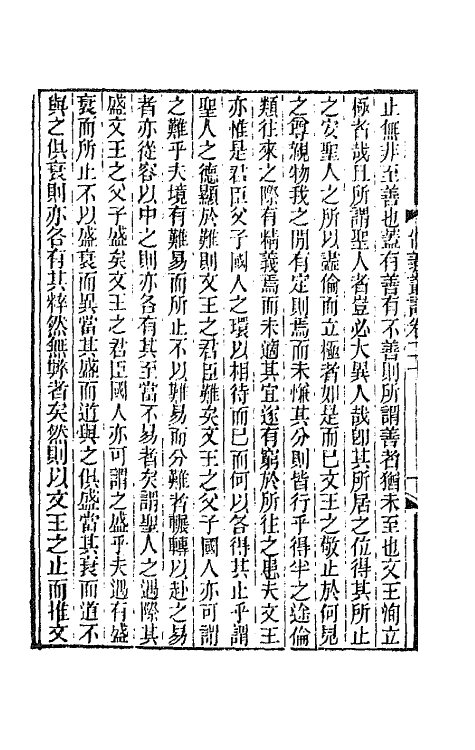 止無非至善也蓋有善有不善則所謂善者猶未至也文王洵立
極者哉且所謂聖人者豈必大異人哉卽其所居之位得其所止
之安聖人之所以盡倫而立極者如是而已文王之敬止於何見
之尊親物我之閒有定則焉而未慊其分則皆行乎得半之途倫
類往來之際有精義焉而未適其宜遂有窮於所往之患夫文王
亦惟是君臣父子國人之環以相待而已而何以各得其止乎謂
聖人之德顯於難則文王之君臣難矣文王之父子國人亦可謂
之難乎夫境有難易而所止不以難易而分難者輾轉以赴之易
者亦從容以中之則亦各有其至當不易者矣謂聖人之遇際其
盛文王之父子盛矣文王之君臣國人亦可謂之盛乎夫遇有盛
衰而所止不以盛衰而異當其盛而道與之俱盛當其衰而道不
與之俱衰則亦各有其粹然無弊者矣然則以文王之止而惟文